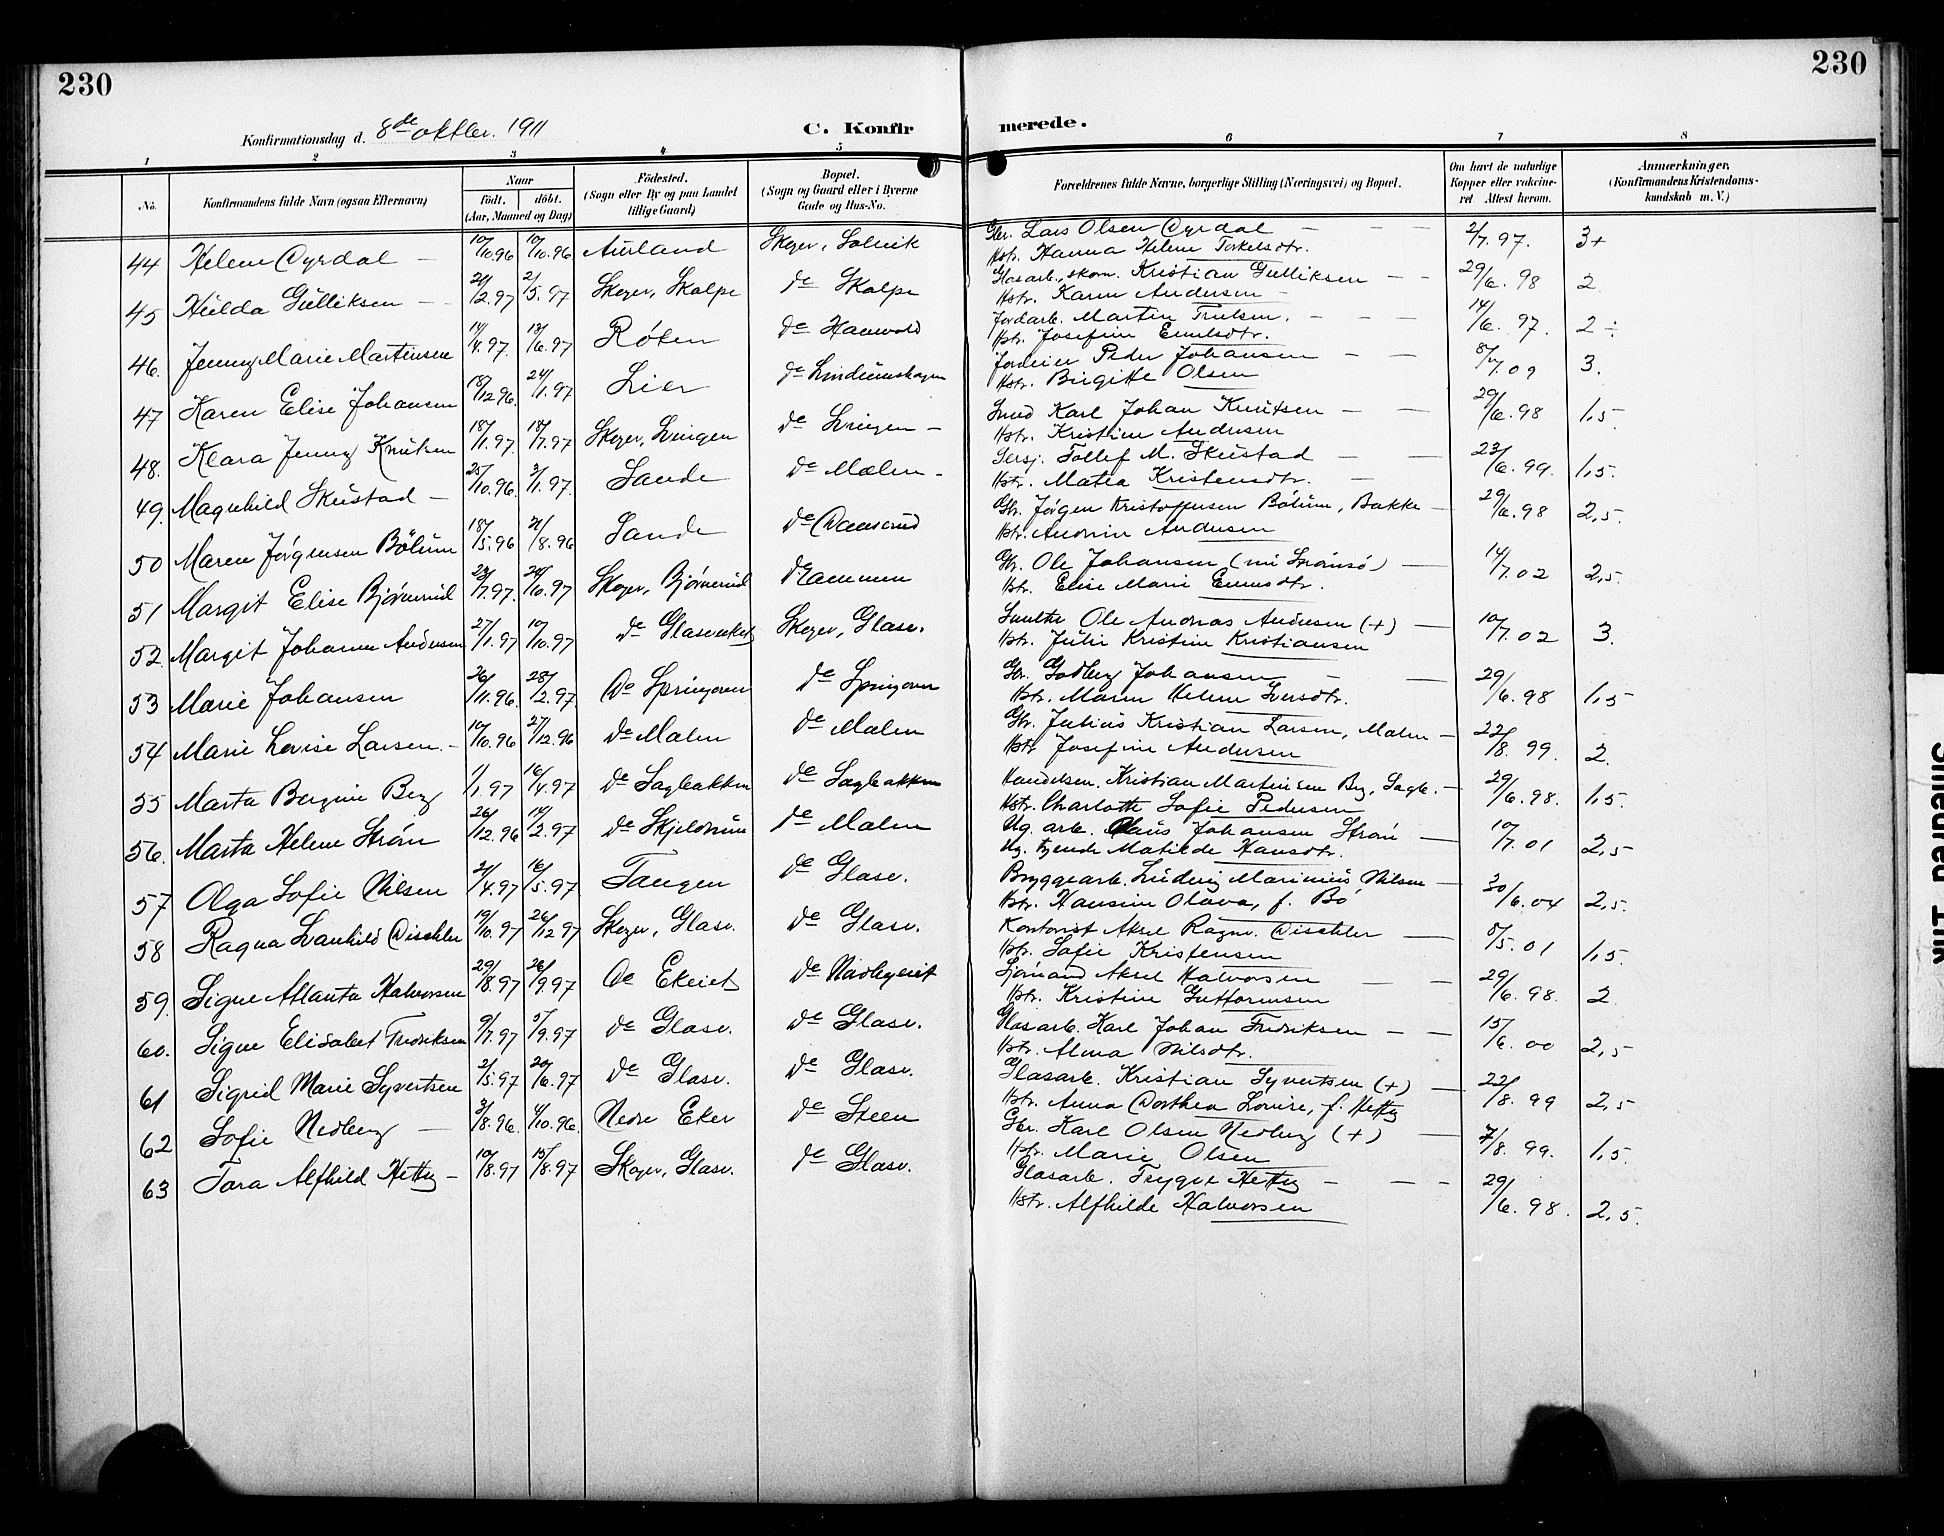 230
230
Konfirmationsdag d. 8de oktbr. 1911
C. Konfirmerede.
1 2 3 4 5 6 7 8
No. Konfirmandens fulde Navn (ogsaa Efternavn) Naar födt. döbt. (Aar, Maaned og Dag) Födested. (Sogn eller By og paa Landet tillige Gaard) Bopæl. (Sogn og Gaard eller i Byerne Gade og Hus-No. Forældrenes fulde Navne, borgerlige Stilling (Næringsvei) og Bopæl. Om havt de naturlige Kopper eller vaccineret Attest herom. Anmærkninger, (Konfirmandens Kristendomskundskab m. V.)
44 Helene Dyrdal – 10/10 96 10/10. 96 Aurland Skoger, Solvik Gbr. Lars Olsen Dyrdal – – 2/7. 97. 3+
Hstr. Hanna Helene Torkelsdtr.
45 Hulda Gulliksen – – /2. 97 /5. 97 Skoger, Skalpe de Skalpe Glasarb., skom. Kristian Gulliksen – – 29/6. 98 2.
Hstr. Karen Andersen
46. Jenny Marie Martinsen 14/4. 97. 13/6. 97 Röken de Hanevold Jordarb. Martin Trulsen. – – – 14/6. 97. 2 ÷
Hstr. Josefine Emilsdtr.
47 Karen Elise Johansen 18/12 96. 24/1. 97 Lier de Lindumskogen Jordeier Peder Johansen – – 09 3.
Hstr. Birgitte Olsen
48. Klara Jenny Knutsen 18/1. 97. 18/7. 97 Skoger, de – Smed Karl Johan Knutsen – – 29/6. 98 1,5
Hstr. Kristine Andersen
49. Magnhild Skustad – 25/10. 96. 3/1. 97. Sande de Malen – Sersj. Tollef M. Skustad – – 23/6. 99. 1,5.
Hstr. Matea Kristensdtr. –
50 Maren Jörgensen Bölum 18/5. 96 /8. 96 Sande de Gbr. Jörgen Kristoffersen Bölum, Bakke – 29/6. 98 2,5.
Hstr. Andrine Andersen
51 Margit Elise Björnerud 23/7. 97. /10. 97 Skoger, Björnerud Drammen Gbr. Ole Johansen – 14/7. 02 2,5.
Hstr. Elise Marie
52. Margit Johanne Andersen 27/1. 97 10/10. 97 de Glasverket Skoger, Glasv. Ole Andreas Andersen (+) – 10/7. 02 3.
Hstr. Julie Kristine Kristiansen
53 Marie Johansen 26/11. 96. 28/2. 97. De Springeren de Springeren Gbr. Godberg Johansen – – 29/6. 98 1,5
Hstr. Maren Helene Iversdtr.
54 Marie Lovise Larsen. – 10/10. 96 27/12. 96 de Malen de Malen Gbr. Julius Kristian Larsen, Malen – 22/8. 99. 2.
Hstr. Josefine Andersen
55 Marta Bergine Berg 1/1. 97 16/4. 97 de Sagbakken de Sagbakken Handelsm. Kristian Martinsen Berg, Sagb. – 29/6. 98. 1,5.
Hstr. Charlotte Sofie Pedersen
56. Marta Helene Ström 26/12. 96 14/2. 97 de Skjeldrum de Malen Ug. arb. Claus Johansen Ström – 10/7. 01 2,5
Ug. tjende Matilde Hansdtr.
57 Olga Sofie Nilsen /4. 97 16/5. 97 Tangen de Glasv. Bryggearb. Ludvig Marinius Nilsen – 30/6. 04 2,5.
Hstr. Hansine Olava, f. Bö
58 Ragna Svanhild Dischler 19/10. 97 26/12 97 Skoger, Glasv. de Glasv. Kontorist Aksel Ragnv. Dischler – /5. 01 1,5.
Hstr. Sofie Kristensen
59. Signe Atlanta Halvorsen 29/8. 97 26/9. 97 De Ekeiet de Sjömand Aksel Halvorsen – – 29/6. 98. 2.
Hstr. Kristine Guttormsen
60. Signe Elisabet Fredriksen 9/7. 97 5/9. 97 de Glasv. de Glasv. Glasarb. Karl Johan Fredriksen – – 15/6. 00 2,5
Hstr. Alma Nilsdtr.
61 Sigrid Marie Syvertsen 2/5. 97 20/6. 97 de Glasv. de Glasv. Glasarb. Kristian Syvertsen (+) – 22/8. 99 2,5
Hstr. Anna Dorthea Lovise, f. Hetty
62 Sofie Nedberg – 3/8. 96. 4/10. 96. Nedre Eker de Steen Gbr. Karl Olsen Nedberg (+) – 7/8. 99. 1,5.
Hstr. Marie Olsen
63 Tora Alfhild Hetty – 10/8. 97 15/8. 97 Skoger, Glasv. de Glasv. Glasarb. Trygve Hetty – – – 29/6. 98. 2,5.
Hstr. Alfhilde Halvorsen